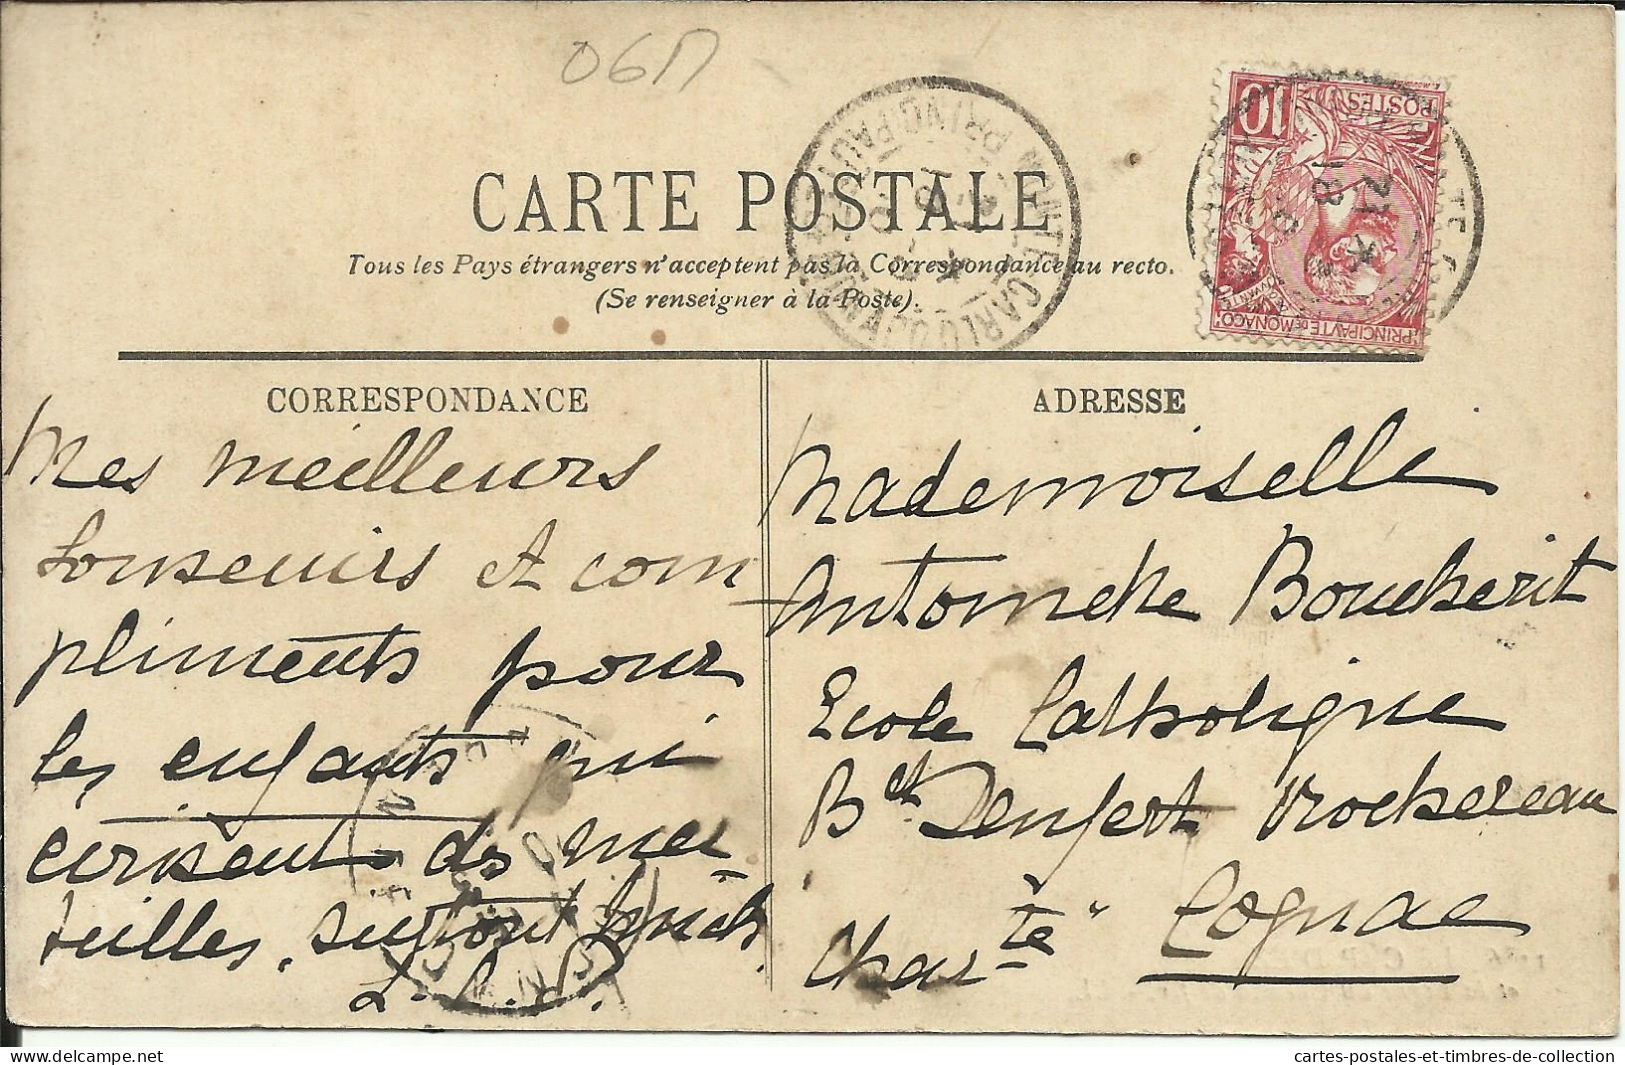 06M
CARTE POSTALE
Tous les Pays étrangers n'acceptent pas la Correspondance au recto.
(Se renseigner à la Poste).
10
POSTES
PRINCIPAUTÉ DE MONACO
MONTE CARLO
PRINCIPAUTÉ
CORRESPONDANCE
Mes meilleurs
souvenirs et com
pliments pour
les enfants qui
écrisent des mer
veilles, surtout
L. L. P.
ADRESSE
Mademoiselle
Antoinette Boucherit
Ecole Catholique
Bet Denfert Rochereau
Charte Cognac
cartes-postales-et-timbres-de-collection